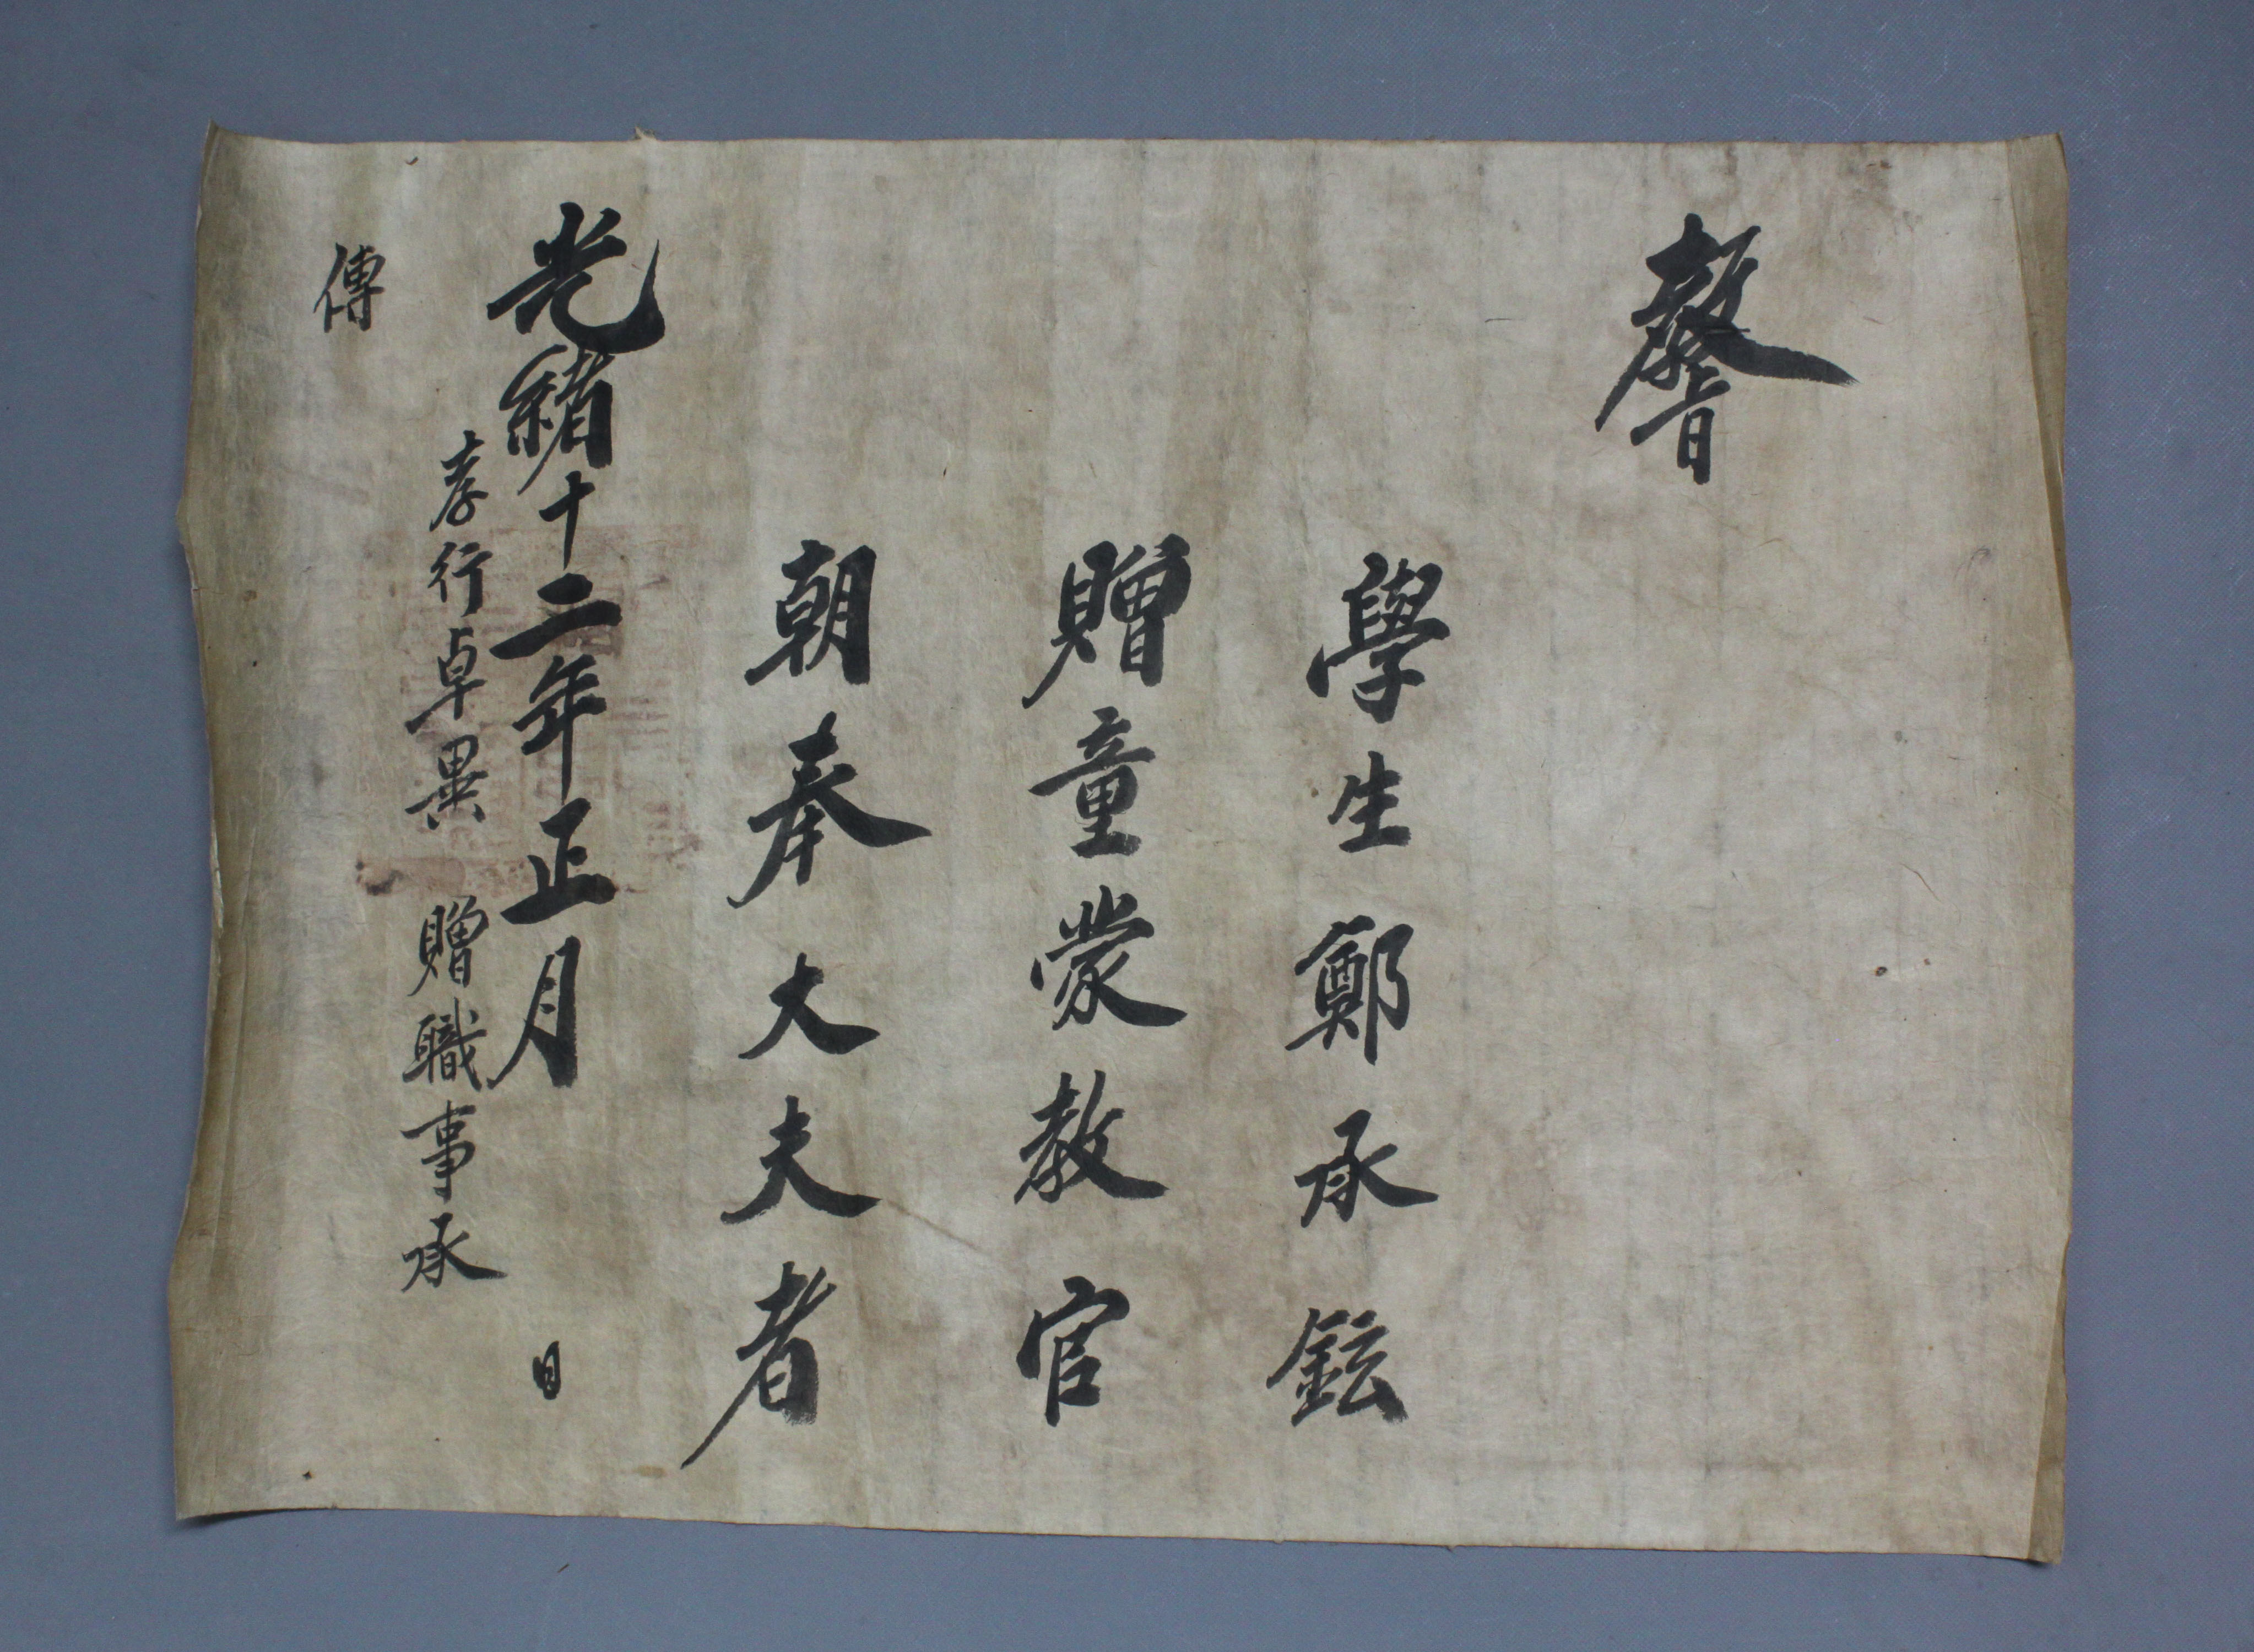 敎旨
學生鄭承鉉
贈童蒙敎官
朝奉大夫者
光緖十二年正月 日
孝行卓異 贈職事承
傳